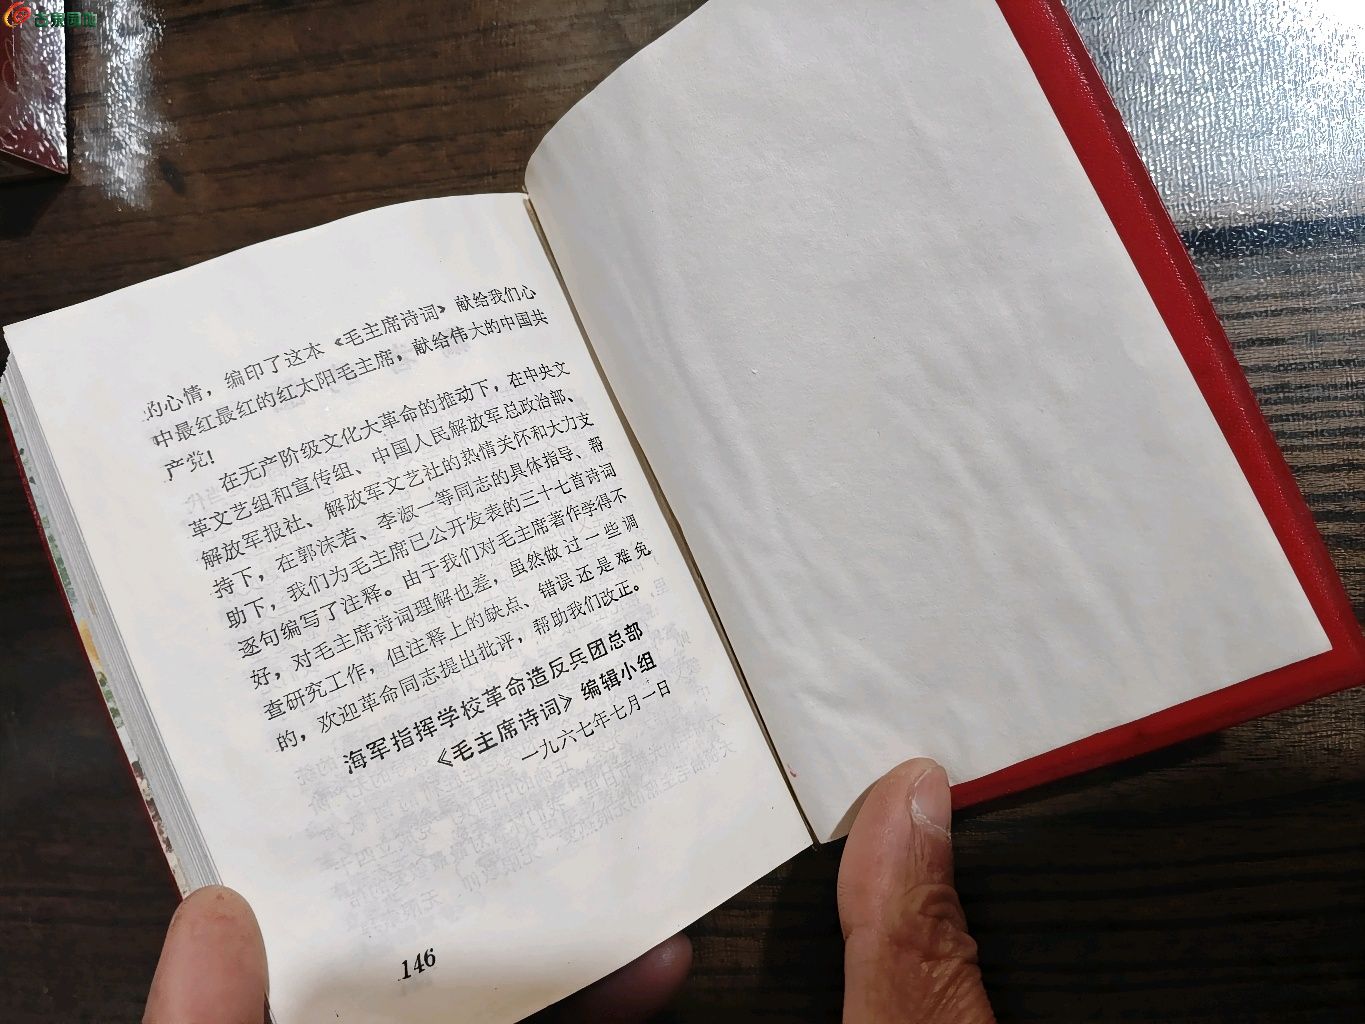 古泉园地
的心情，编印了这本《毛主席诗词》献给我们心
中最红最红的红太阳毛主席，献给伟大的中国共
产党！
在无产阶级文化大革命的推动下，在中央文
革文艺组和宣传组、中国人民解放军总政治部、
解放军报社、解放军文艺社的热情关怀和大力支
持下，在郭沫若、李淑一等同志的具体指导、帮
助下，我们为毛主席已公开发表的三十七首诗词
逐句编写了注释。由于我们对毛主席著作学得不
好，对毛主席诗词理解也差，虽然做过一些调
查研究工作，但注释上的缺点、错误还是难免
的，欢迎革命同志提出批评，帮助我们改正。
海军指挥学校革命造反兵团总部
《毛主席诗词》编辑小组
一九六七年七月一日
146